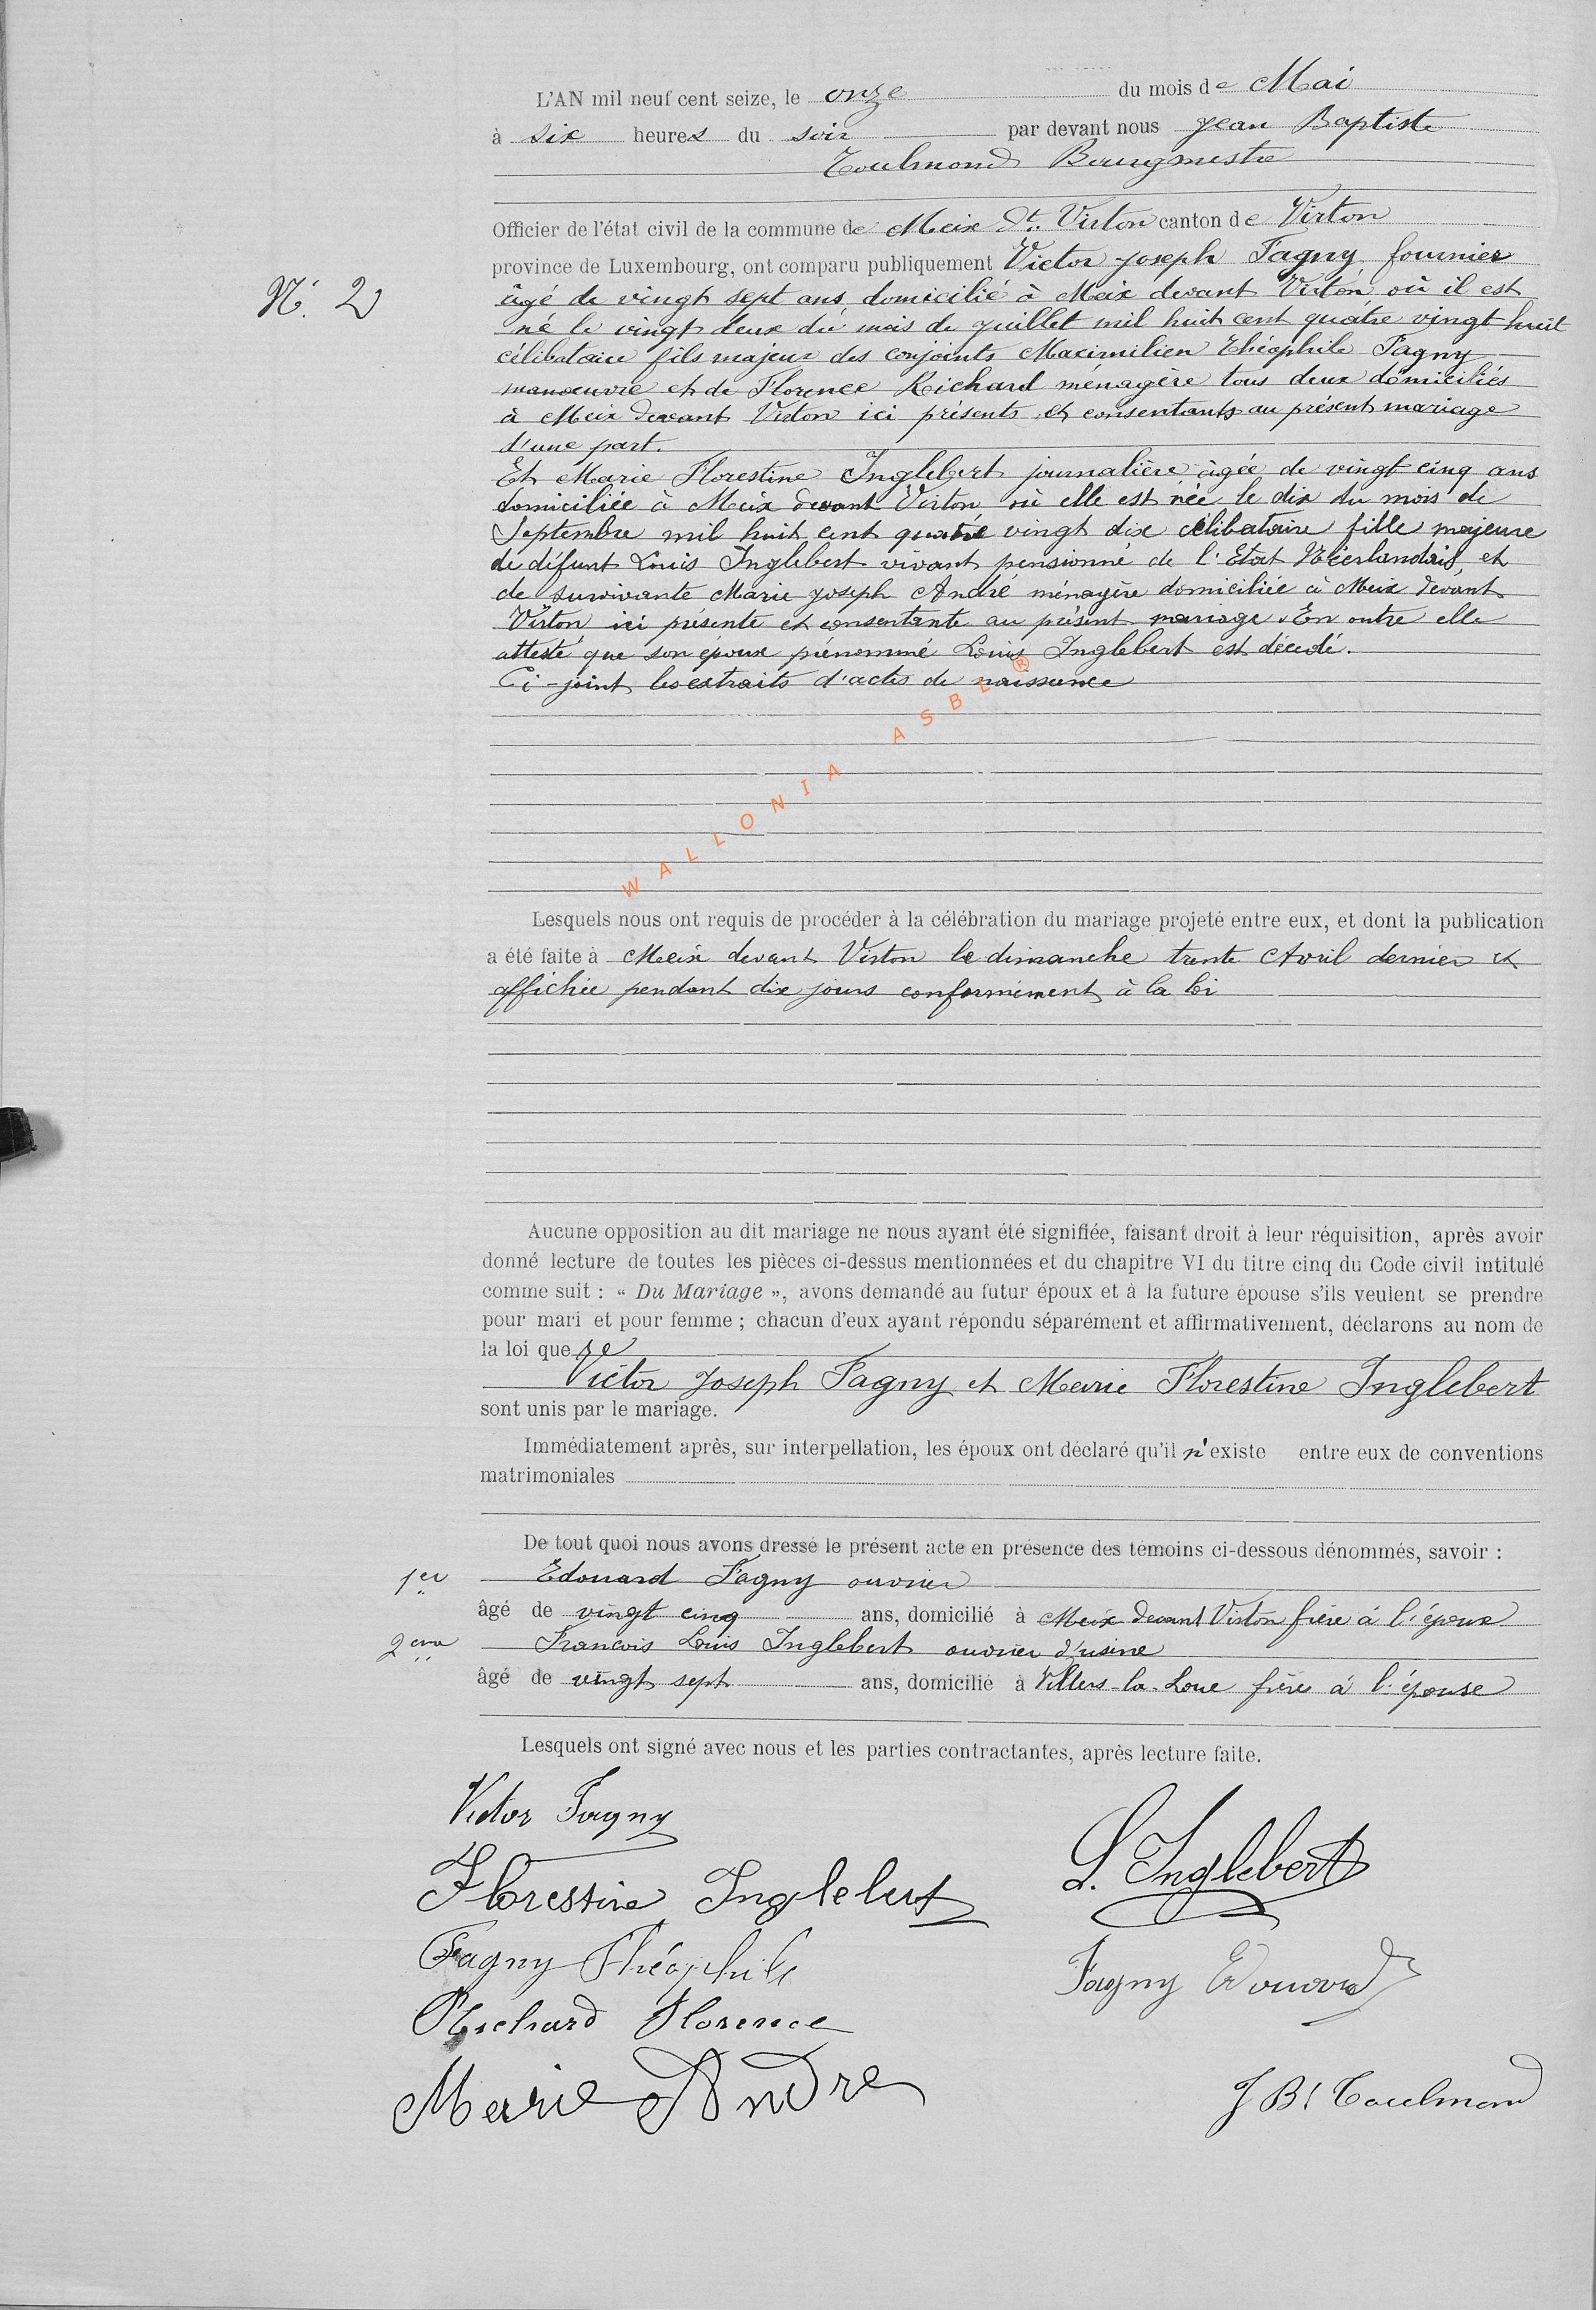 L'AN mil neuf cent seize, le onze du mois de Mai
à six heures du soir par devant nous Jean Baptiste
Toulmond Bourgmestre
Officier de l'état civil de la commune de Meix dt. Virton canton de Virton
province de Luxembourg, ont comparu publiquement Victor Joseph Fagny fournier
N° 2
âgé de vingt sept ans domicilié à Meix devant Virton où il est
né le vingt deux du mois de juillet mil huit cent quatre vingt huit
célibataire fils majeur des conjoints Maximilien Théophile Fagny
manœuvre et de Florence Richard ménagère tous deux domiciliés
à Meix devant Virton ici présents et consentants au présent mariage
d'une part.
Et Marie Florestine Inglebert journalière âgée de vingt cinq ans
domiciliée à Meix devant Virton où elle est née le dix du mois de
Septembre mil huit cent quatre vingt dix célibataire fille majeure
de défunt Louis Inglebert vivant pensionné de l'Etat Néerlandais, et
de survivante Marie Joseph André ménagère domiciliée à Meix devant
Virton ici présente et consentante au présent mariage. En outre elle
atteste que son époux prénommé Louis Inglebert est décédé.
Ci-joint les extraits d'actes de naissance
WALLONIA ASBL ®
Lesquels nous ont requis de procéder à la célébration du mariage projeté entre eux, et dont la publication
a été faite à Meix devant Virton le dimanche trente Avril dernier et
affichée pendant dix jours conformément à la loi
Aucune opposition au dit mariage ne nous ayant été signifiée, faisant droit à leur réquisition, après avoir
donné lecture de toutes les pièces ci-dessus mentionnées et du chapitre VI du titre cinq du Code civil intitulé
comme suit : « Du Mariage », avons demandé au futur époux et à la future épouse s'ils veulent se prendre
pour mari et pour femme ; chacun d'eux ayant répondu séparément et affirmativement, déclarons au nom de
la loi que
Victor Joseph Fagny et Marie Florestine Inglebert
sont unis par le mariage.
Immédiatement après, sur interpellation, les époux ont déclaré qu'il n'existe entre eux de conventions
matrimoniales
De tout quoi nous avons dressé le présent acte en présence des témoins ci-dessous dénommés, savoir :
1er Edouard Fagny ouvrier
âgé de vingt cinq ans, domicilié à Meix devant Virton frère à l'époux
2eme Francois Louis Inglebert ouvrier d'usine
âgé de vingt sept ans, domicilié à Villers-la-Loue frère à l'épouse
Lesquels ont signé avec nous et les parties contractantes, après lecture faite.
Victor Fagny
L. Inglebert
Florestine Inglebert
Fagny Théophile
Fagny Edouard
Richard Florence
Marie André
J Bt Toulmond